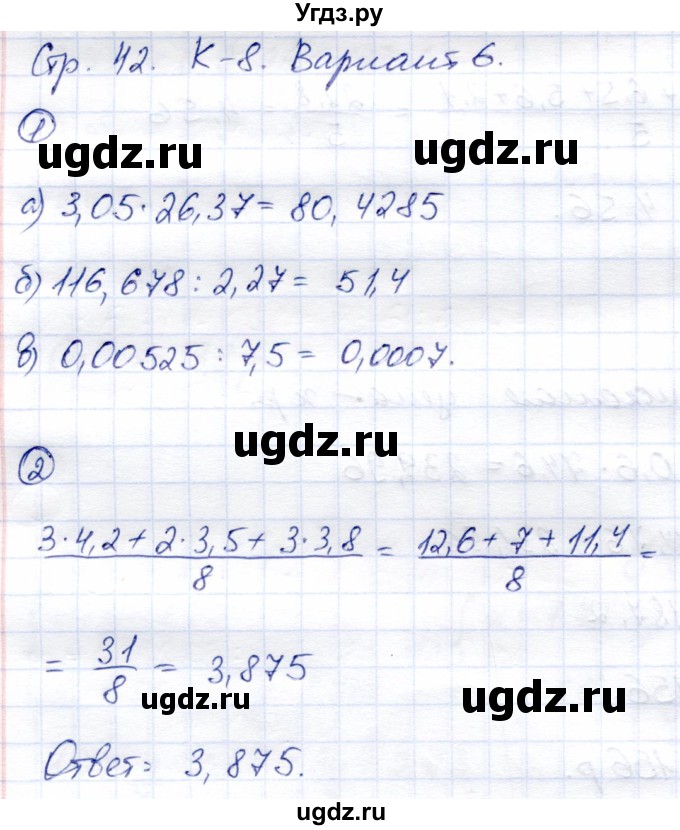 Угдз.ру
Стр. 42. К-8. Вариант 6.
1
ugdz.ru ugdz.ru
а) 3,05·26,37= 80,4285
б) 116,678 : 2,27= 51,4
в) 0,00525 : 7,5 = 0,0007.
ugdz.ru
2
3·4,2+2·3,5+3·3,8 / 8 = 12,6+7+11,4 / 8 =
= 31/8 = 3,875
ugdz.ru ugdz.ru
Ответ: 3,875.
ugdz.ru